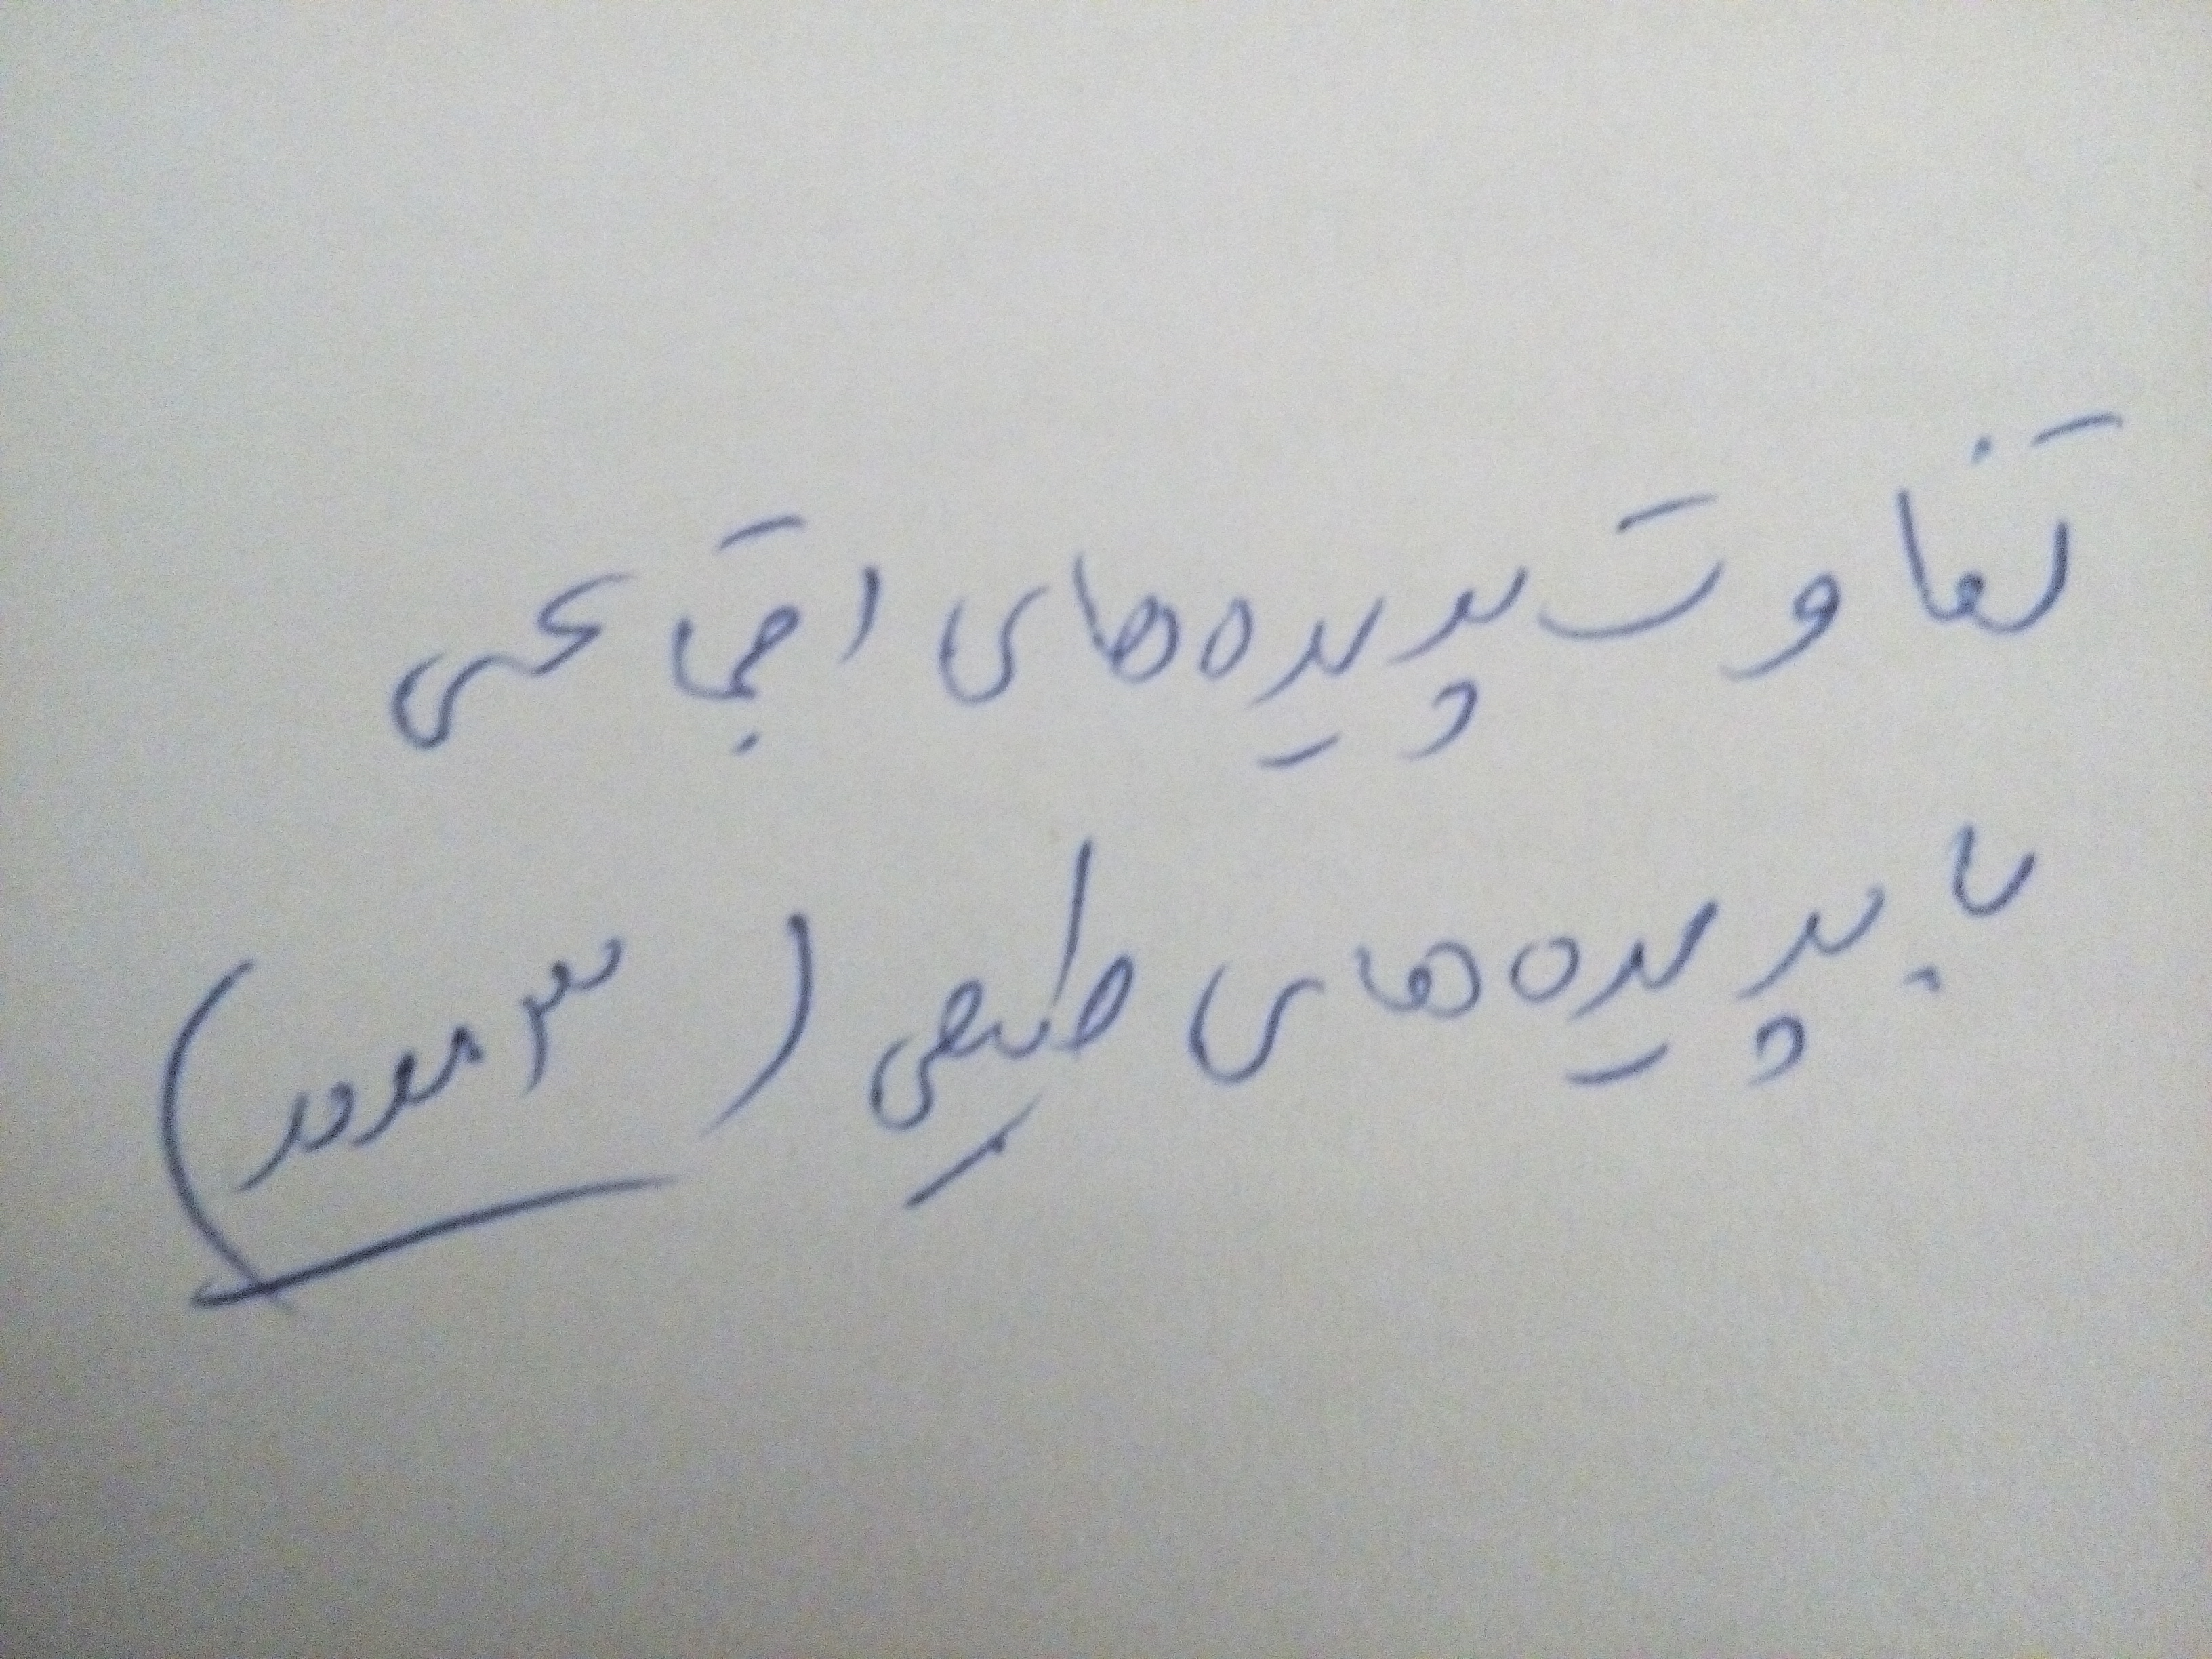 تفاوت پدیده‌های اجتماعی
با پدیده‌های طبیعی (۳ مورد)